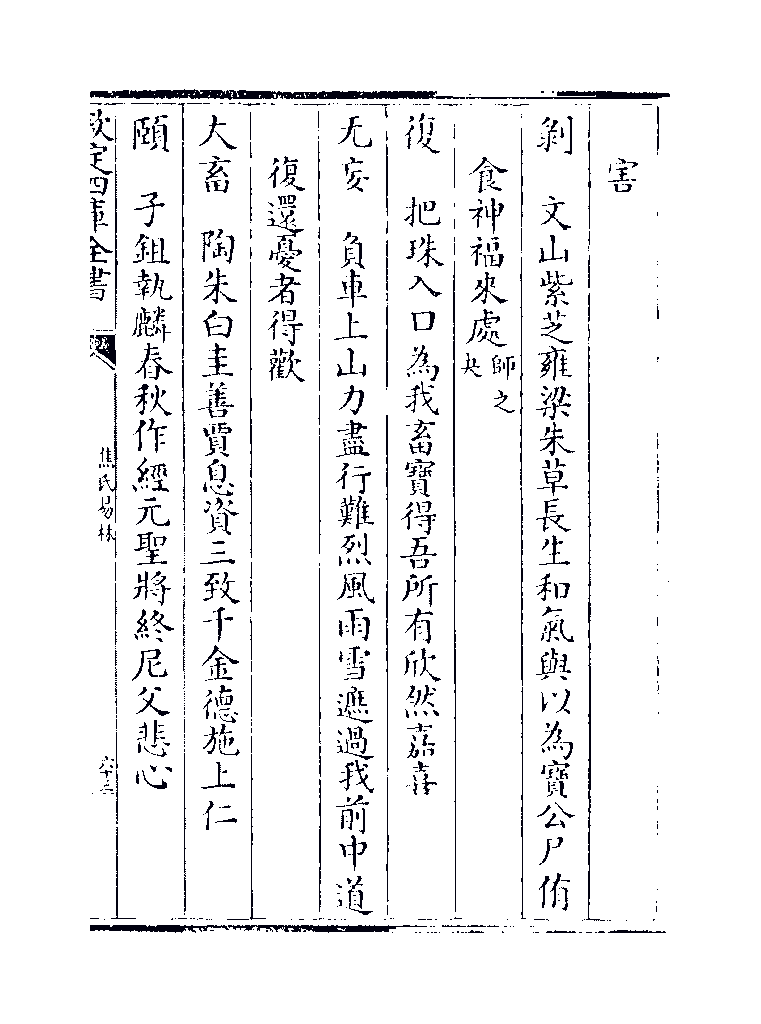 害
剝　文山紫芝雍梁朱草長生和氣與以為寶公尸侑
食神福來處師之夬
復　把珠入口為我畜寶得吾所有欣然嘉喜
无妄　負車上山力盡行難烈風雨雪遮過我前中道
復還憂者得歡
大畜　陶朱白圭善賈息資三致千金德施上仁
頤　子鉏執麟春秋作經元聖將終尼父悲心
欽定四庫全書
焦氏易林
六十三